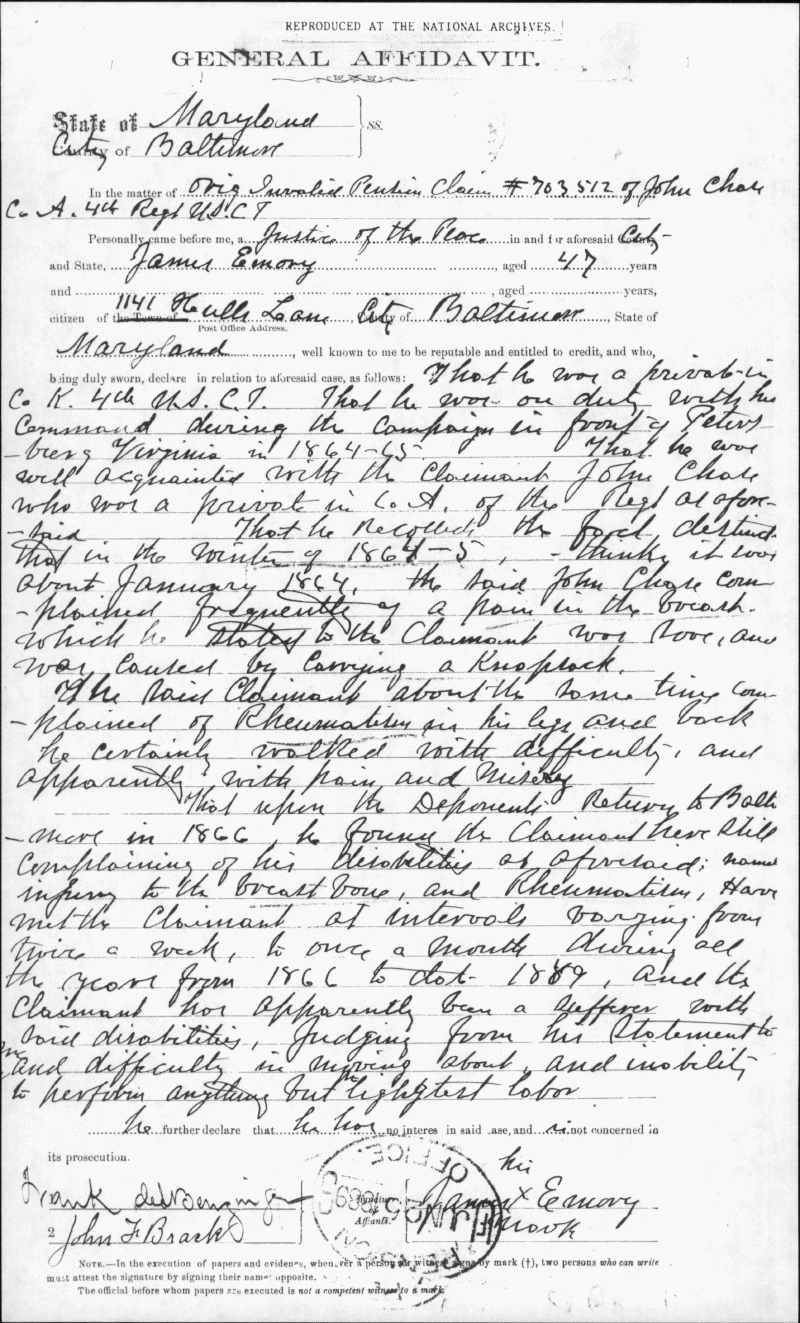 REPRODUCED AT THE NATIONAL ARCHIVES.
GENERAL AFFIDAVIT.
State of Maryland
City County of Baltimore } ss.
In the matter of Orig Invalid Pension Claim # 703,512 of John Chase
Co A. 4th Regt U.S.C.T
Personally came before me, a Justice of the Peace in and for aforesaid County City
and State, James Emory, aged 47 years
and, aged years,
citizen of the Town of 1141 Hulls Lane City County of Baltimore, State of
Post Office Address.
Maryland, well known to me to be reputable and entitled to credit, and who,
being duly sworn, declare in relation to aforesaid case, as follows: That he was a private in
Co K. 4th U.S.C.T. That he was on duty with his
Command during the Campaign in front of Peters-
-berg Virginia in 1864-65. That he was
well acquainted with the Claimant John Chase
who was a private in Co. A. of the Regt as afore-
-said That he Recollects the fact distinct
that in the winter of 1864-5, - thinks it was
about January 1864, the said John Chase com-
-plained frequently of a pain in the breast.
which he stated to the Claimant was sore, and
was caused by Carrying a Knapsack.
The said Claimant about the same time com-
-plained of Rheumatism in his legs and back
he certainly walked with difficulty, and
apparently with pain and misery
That upon the Deponents Return to Balti
-more in 1866 he found the Claimant here still
complaining of his disabilities as aforesaid; name
injury to the breast bone, and Rheumatism, Have
met the Claimant at intervals varying from
twice a week, to once a month during all
the years from 1866 to date 1889, and the
Claimant has apparently been a sufferer with
said disabilities, Judging from his Statement to
me and difficulty in moving about, and inability
to perform anything but the lightest labor
he further declare that he has no interes in said case, and is not concerned in
its prosecution.
his
James X Emory
mark
Signature of Affiants.
Frank
2 John F Brack
PENSION OFFICE
NOTE.—In the execution of papers and evidence, whenever a person or witness signs by mark (†), two persons who can write
must attest the signature by signing their names opposite.
The official before whom papers are executed is not a competent witness to a mark.